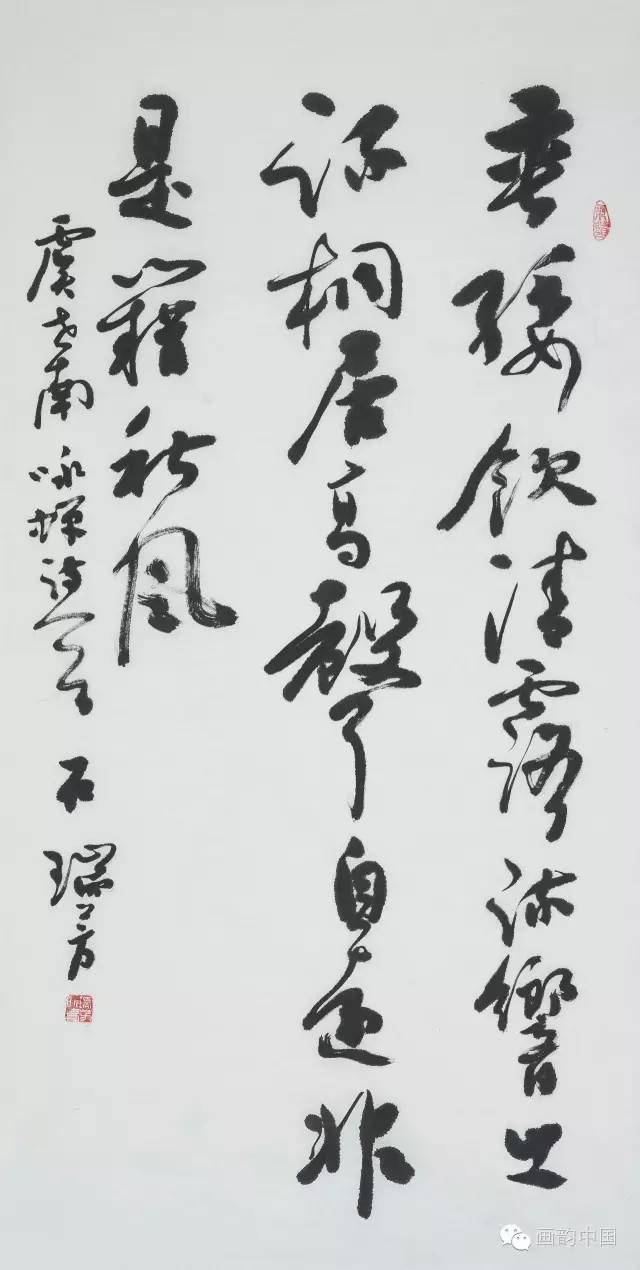 垂緌飲清露流響出
疏桐居高聲自遠非
是藉秋風
虞世南咏蟬詩一首 石瑞芳
画韵中国